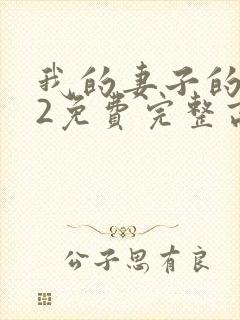 我的妻子的
2免费完整
公子思有良